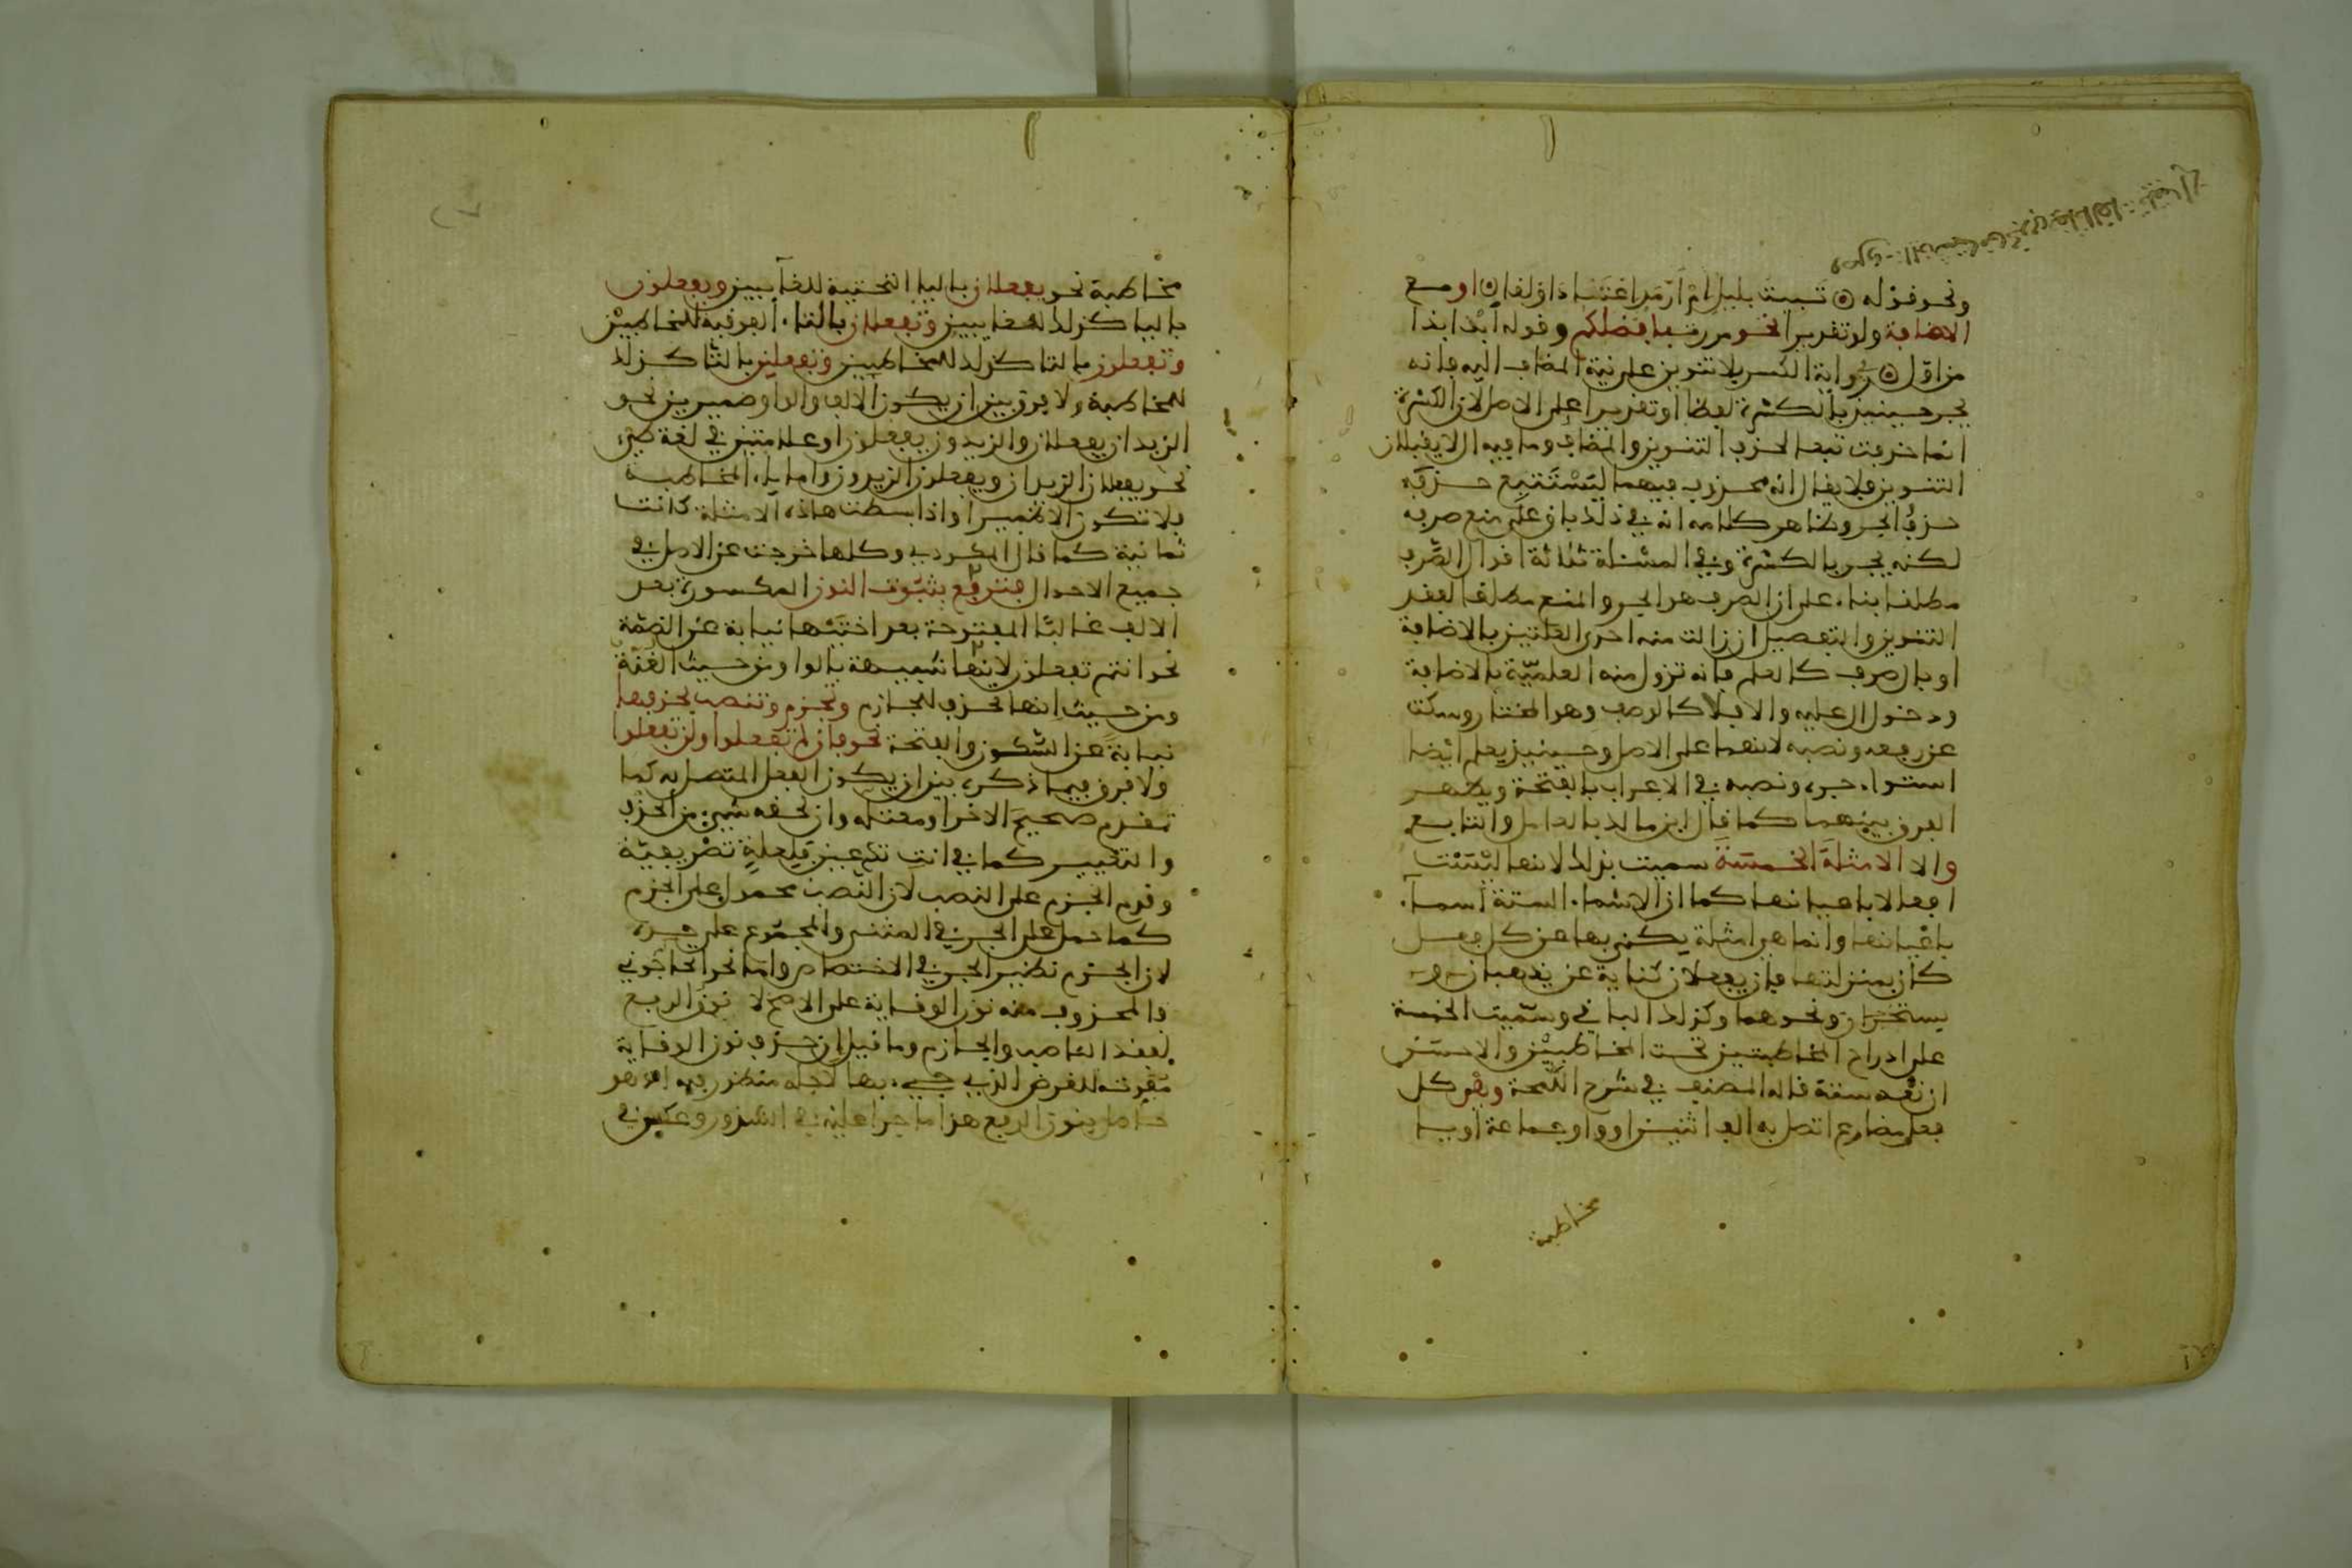 ونحو قوله ⊙ تبيت بليل امْ ارمد اعتاد اولقا ⊙ او مع
الاضافة ولو تقديرا نحو مررت بافضلكم وقوله ابدا بذا
من اول ⊙ رواية الكسر بلا تنوين على نية المضاف اليه فانه
يجر حينيذ بالكسرة لفظا او تقديرا على الاصل لان الكسرة
انما حذفت تبعا لحذف التنوين والمضاف وما فيه ال لا يقبلان
التنوين فلا يقال انه محذوف فيهما ليستتبع حذفه
حذف الجر وظاهر كلامه انه في ذلك باق على منع صرفه
لكنه يجر بالكسرة وفي المسئلة ثلاثة اقوال الصرف
مطلقا بناء على ان الصرف هو الجر والمنع مطلقا لفقد
التنوين والتفصيل ان زالت منه احدى العلتين بالاضافة
او بال صرف كالعلم فانه تزول منه العلمية بالاضافة
ودخول ال عليه والا فلا كالوصف وهو المختار وسكت
عن رفعه ونصبه لانهما على الاصل وحينيذ يعلم ايضا
استواء جره ونصبه في الاعراب بالفتحة ويظهر
الفرق بينهما كما قال ابن مالك بالعامل والتابع
والا الامثلة الخمسة سميت بذلك لانها ليست
افعالا باعيانها كما ان الاسماء الستة اسماء
باعيانها وانما هي امثلة يكنى بها عن كل فعل
كان بمنزلتها فان يفعلان كناية عن يذهبان و
يستخرجان ونحوهما وكذلك الباقي وسميت الخمسة
على ادراج المخاطبتين تحت المخاطبين والاحسن
ان تعد ستة قاله المصنف في شرح اللمحة وهو كل
فعل مضارع اتصل به الف اثنين او واو جماعة او يا
مخاطبة
مخاطبة نحو يفعلان باليا التحتية للغايبين ويفعلون
باليا كذلك للغايبين وتفعلان بالتاء الفوقية للمخاطبين
وتفعلون بالتا كذلك للمخاطبين وتفعلين بالتا كذلك
للمخاطبة ولا فرق بين ان يكون الالف والواو ضميرين نحو
الزيدان يفعلان والزيدون يفعلون او علامتين في لغة طيء
نحو يفعلان الزيدان ويفعلون الزيدون واما ياء المخاطبة
فلا تكون الا ضميرا واذا بسطت هاذه الامثلة كانت
ثمانية كما قال المكودي وكلها خرجت عن الاصل في
جميع الاحوال فترفع بثبوت النون المكسورة بعد
الالف غالبا المفتوحة بعد اختيها نيابة عن الضمة
نحو انتم تفعلون لانها شبيهة بالواو من حيث الغنة
ومن حيث انها تحذف للجازم وتجزم وتنصب بحذفها
نيابة عن السكون والفتحة نحو فان لم تفعلوا ولن تفعلوا
ولا فرق فيما ذكر بين ان يكون الفعل المتصل به كما
تقدم صحيح الاخر او معتله وان لحقه شيء من الحذف
والتغيير كما في انت تدعين فلعلة تصريفية
وقدم الجزم على النصب لان النصب محمول على الجزم
كما حمل على الجر في المثنى والمجموع على حده
لان الجزم نظير الجر في الاختصاص واما نحو اتحاجوني
فالمحذوف منه نون الوقاية على الاصح لا نون الرفع
لفقد الناصب والجازم وما قيل ان حذف نون الوقاية
مفوت للغرض الذي جيء بها لاجله منظور فيه اذ هو
حاصل بنون الرفع هذا ما جرا عليه في الشذور وعكس في